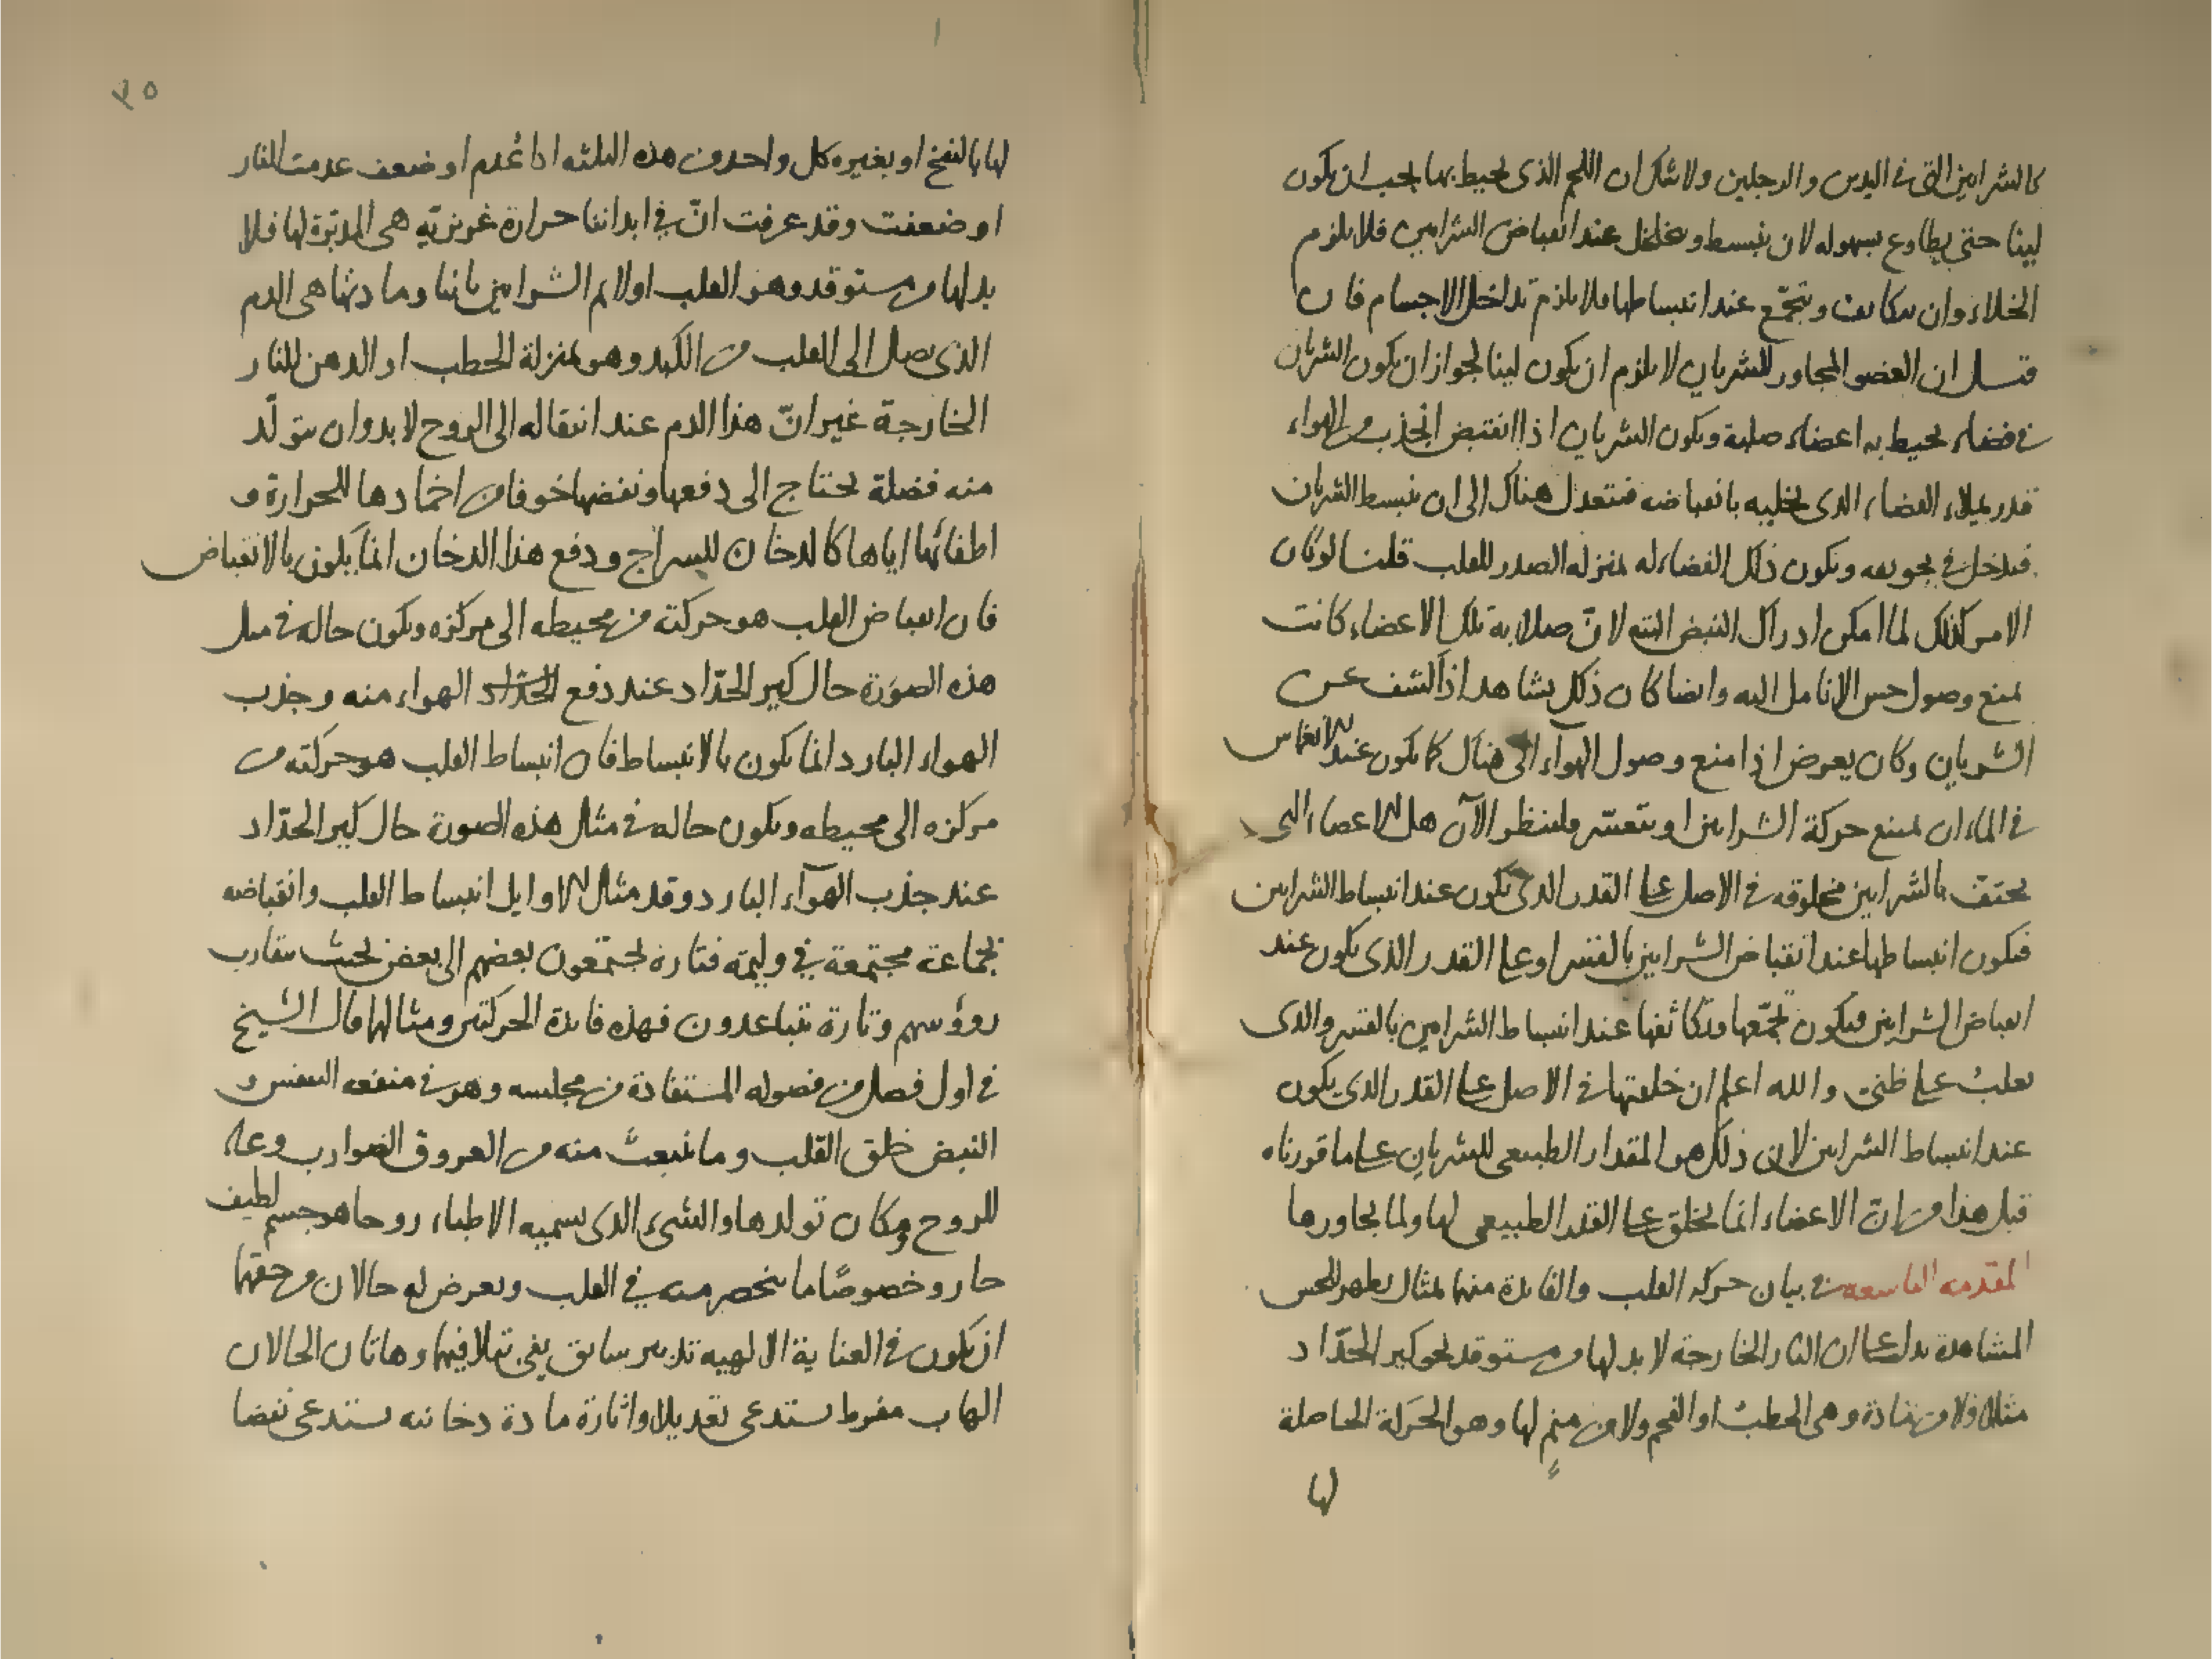 كالشرايين التي في اليدين والرجلين ولا شك ان اللحم الذي يحيط بها يجب ان يكون
لينا حتى يطاوع بسهوله لان ينبسط ويتخلخل عند انقباض الشرايين فلا يلزم
الخلاء وان يتكاثف ويتجمّع عند انبساطها فلا يلزم تداخل الاجسام فان
قيل ان العضو المجاور للشريان لا يلزم ان يكون لينا لجواز ان يكون الشريان
في فضاء يحيط به اعضاء صلبة ويكون الشريان اذا انقبض انجذب من الهواء
قدر يملاء الفضاء الذي يخليه بانقباضه فتعدل هناك الى ان ينبسط الشريان
فيدخل في تجويفه ويكون ذلك الفضاء له بمنزله الصدر للقلب قلنا لو كان
الامر كذلك لما امكن ادراك النبض البتة لانّ صلابة تلك الاعضاء كانت
تمنع وصول حس الانامل اليه وايضا كان ذلك يشاهد اذا كشف عن
الشريان وكان يعرض اذا منع وصول الهواء الى هناك كما يكون عند الانغماس
في الماء ان يمتنع حركة الشرايين او يتعسّر ولننظر الآن هل الاعضاء التي
يحتفّ بالشرايين مخلوقه في الاصل على القدر الذي يكون عند انبساط الشرايين
فيكون انبساطها عند انقباض الشرايين بالقسر او على القدر الذي يكون عند
انقباض الشرايين فيكون تجمّعها وتكاثفها عند انبساط الشرايين بالقسر والذي
يغلب على ظني والله اعلم ان خلقتها في الاصل على القدر الذي يكون
عند انبساط الشرايين لان ذلك هو المقدار الطبيعي للشريان على ما قررناه
قبل هذا من انّ الاعضاء انما يخلق على القدر الطبيعي لها ولما يجاورها
المقدمه التاسعه في بيان حركه القلب والفائدة منها بمثال يظهر للحس
المشاهدة يدل على ان النار الخارجة لا بد لها من مستوقد نحو كير الحدّاد
مثلا ولا من مادة وهي الحطب او الفحم ولا من منمٍ لها وهو الحركة الحاصلة
لها
٣٥
لها بالنفخ او بغيره كل واحد من هذه الثلثه اذا عُدم او ضعف عدمت النار
او ضعفت وقد عرفت انّ في ابداننا حرارة غريزيّه هي المدبّرة لها فلا
بد لها من مستوقد وهو القلب اولا ثم الشرايين ثانيا ومادتها هي الدم
الذي يصل الى القلب من الكبد وهو بمنزلة الحطب او الدهن للنار
الخارجة غير انّ هذا الدم عند انتقاله الى الروح لا بد وان يتولّد
منه فضلة يحتاج الى دفعها ونفضها خوفا من اخمادها للحرارة و
اطفائها اياها كالدخان للسراج ودفع هذا الدخان انما يكون بالانقباض
فان انقباض القلب هو حركته من محيطه الى مركزه ويكون حاله في مثل
هذه الصورة حال كير الحدّاد عند دفع الحدّاد الهواء منه وجذب
الهواء البارد انما يكون بالانبساط فان انبساط القلب هو حركته من
مركزه الى محيطه ويكون حاله في مثال هذه الصورة حال كير الحدّاد
عند جذب الهوآء البارد وقد مثال الاوايل انبساط القلب وانقباضه
بجماعة مجتمعة في وليمة فتارة يجتمعون بعضهم الى بعض بحيث يتقارب
روؤسهم وتارة يتباعدون فهذه فائدة الحركتين ومثالها قال الشيخ
في اول فصل من فصوله المستفادة من مجلسه وهو في منفعه التنفس و
النبض خلق القلب وما ينبعث منه من العروق الضوارب وعاء
للروح ومكان تولدها والشيء الذي يسميه الاطباء روحا هو جسم لطيف
حار وخصوصًا ما ينحصر منه في القلب ويعرض له حالان من حقها
ان يكون في العناية الالهيه تدبير سابق يفي بتلافيها وهاتان الحالان
الهاب مفرط يستدعي تعديلا واثارة مادة دخانيه يستدعي نفضا